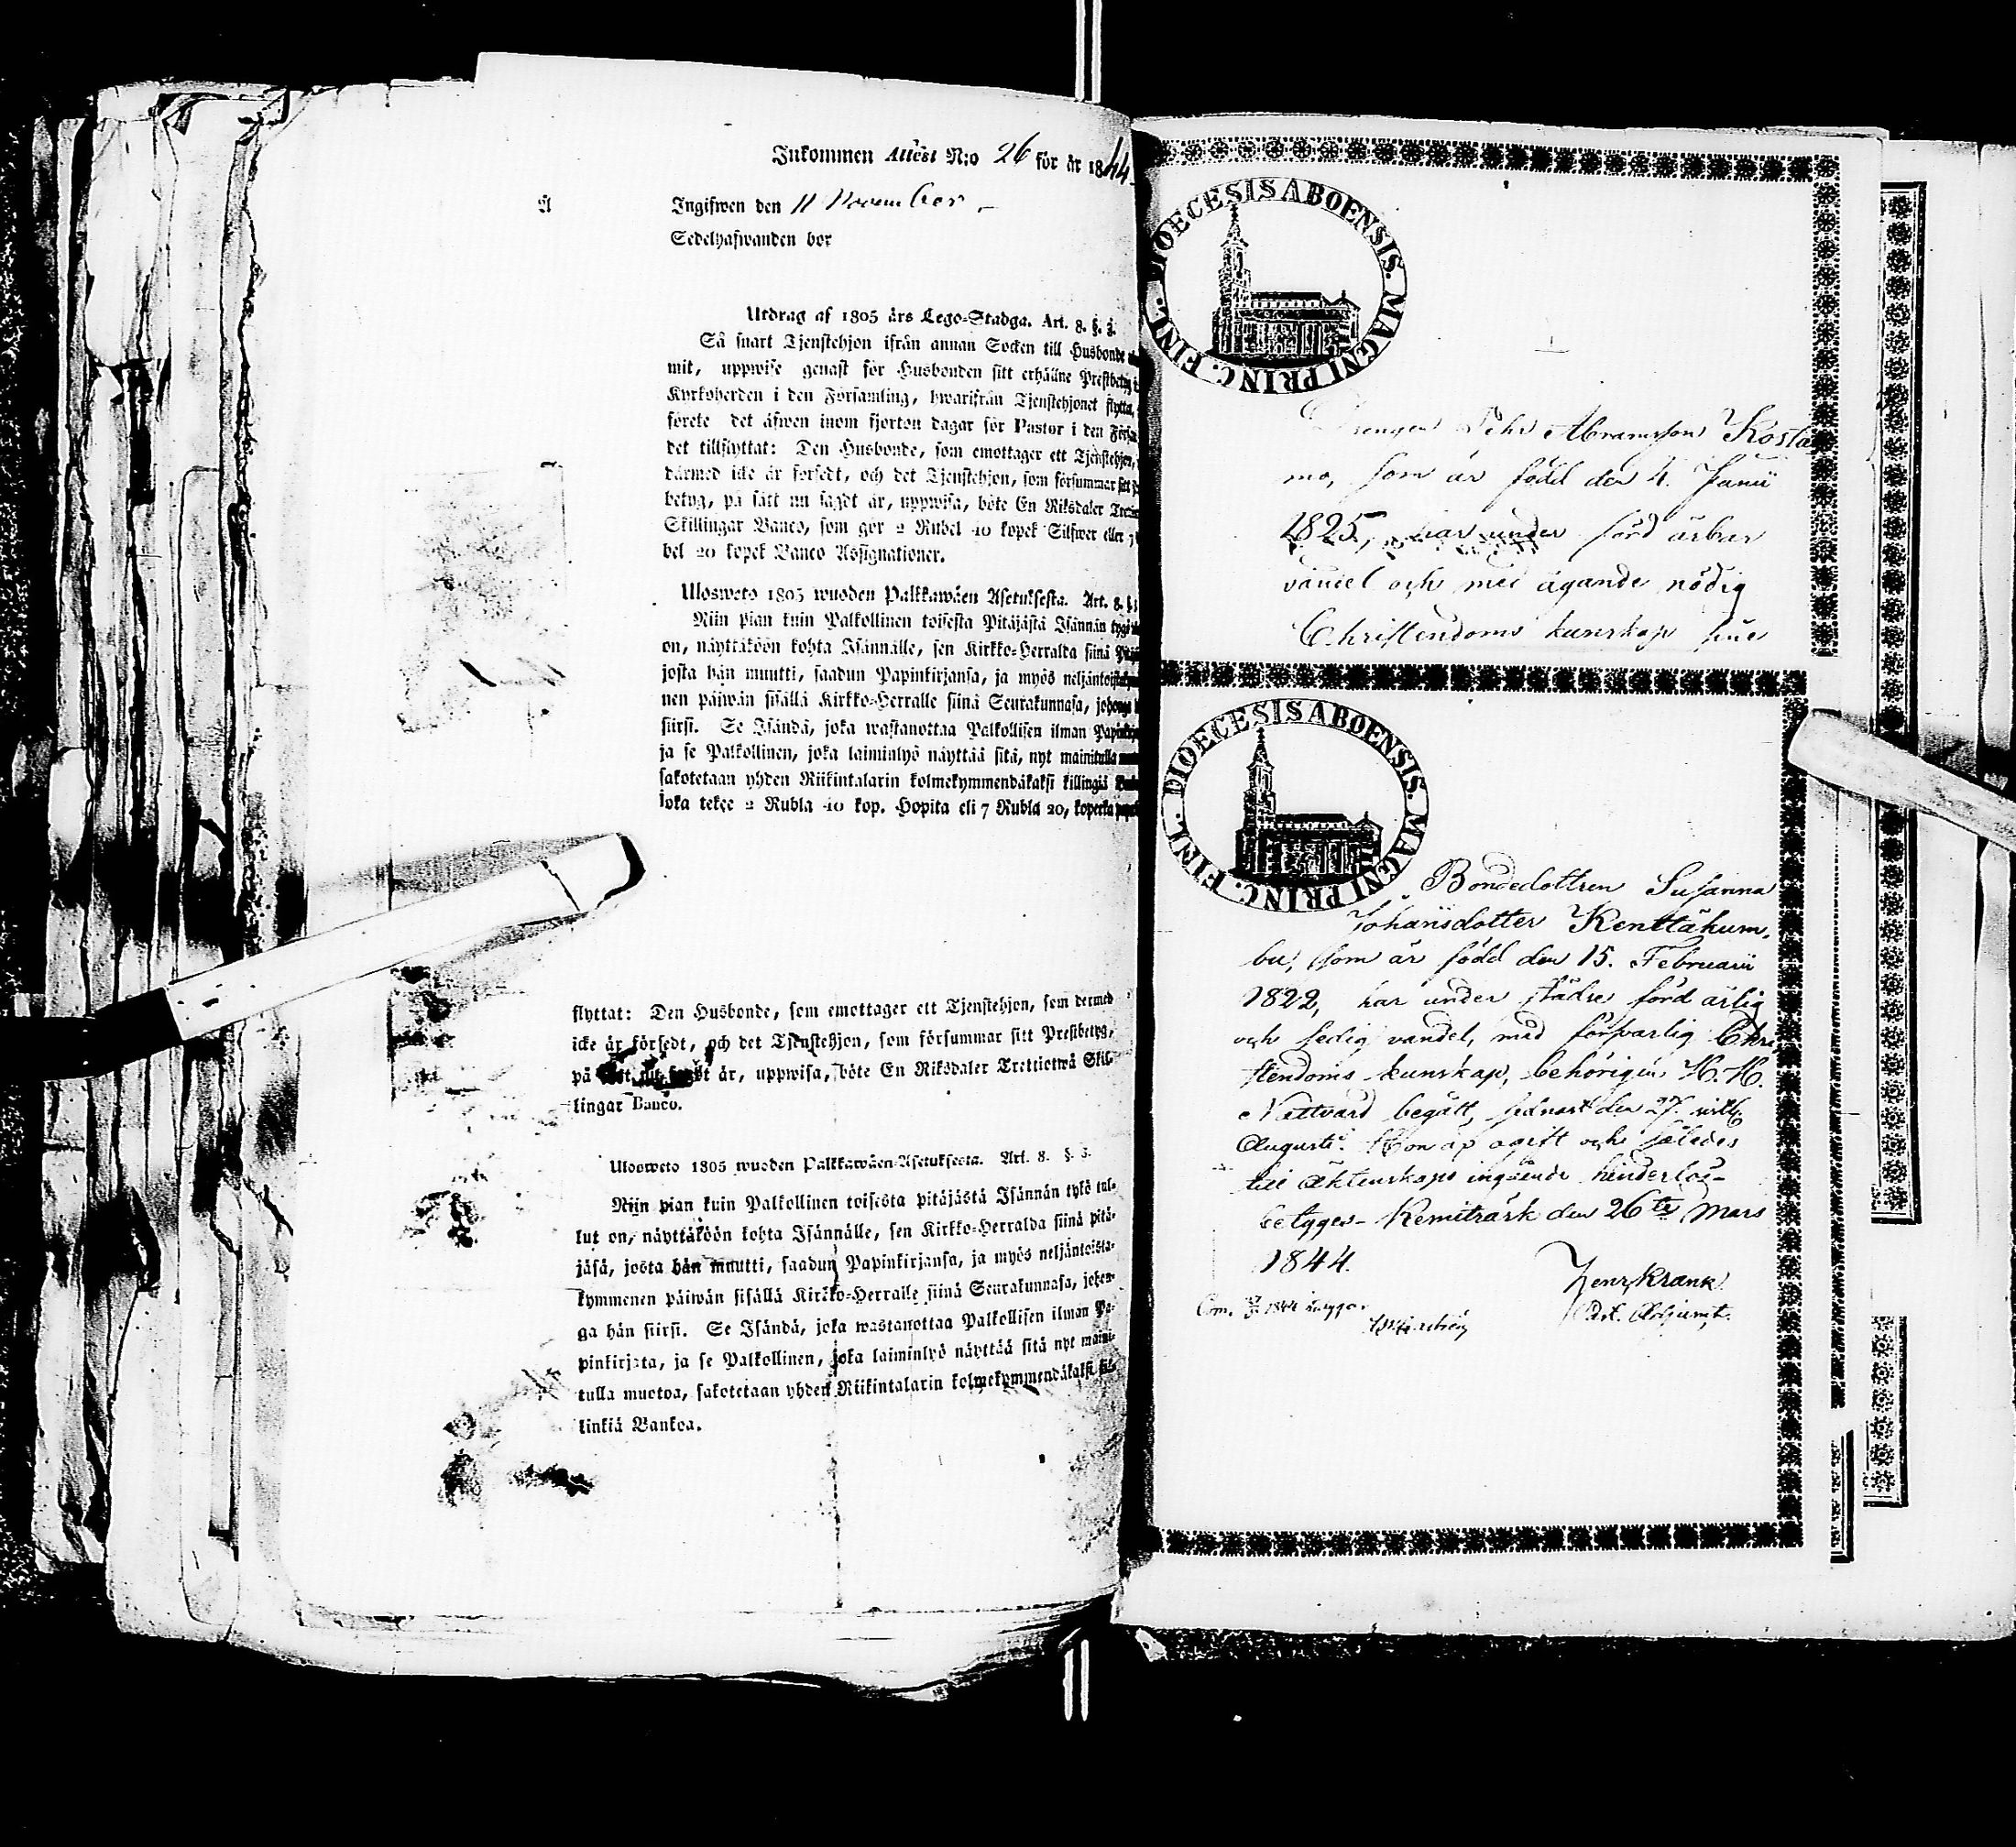 Inkommen Attest N:o 26 för år 1844
Ingifwen den 11 November
Sedelhafwanden bor
Utdrag af 1805 års Lego-Stadga. Art. 8. §. 3.
Så snart Tjenstehjon ifrån annan Socken till Husbonde
mit, uppwise genast för Husbonden sitt erhållne Prestbetyg
Kyrkoherden i den Församling, hwarifrån Tjenstehjonet flytta,
förete det äfwen inom fjorton dagar för Pastor i den
det tillflyttat: Den Husbonde, som emottager ett Tjenstehjon,
därmed icke är försedt, och det Tjenstehjon, som försummar
betyg, på sätt nu sagdt är, uppwisa, böte En Riksdaler
Skillingar Banco, som gör 2 Rubel 40 kopek Silfwer eller 7
bel 20 kopek Banco Assignationer.
Ulosweto 1805 wuoden Palkkawäen Asetuksesta. Art. 8. §.
Niin pian kuin Palkollinen toisesta Pitäjästä Isännän
on, näyttäköön kohta Isännälle, sen Kirkko-Herralda siinä
josta hän muutti, saadun Papinkirjansa, ja myös
nen päiwän sisällä Kirkko-Herralle siinä Seurakunnasa,
siirsi. Se Isändä, joka wastanottaa Palkollisen ilman
ja se Palkollinen, joka laiminlyö näyttää sitä, nyt mainitulla
sakotetaan yhden Riikintalarin kolmekymmendäkaksi killingiä
joka tekee 2 Rubla 40 kop. Hopita eli 7 Rubla 20, kopecka
flyttat: Den Husbonde, som emottager ett Tjenstehjon, som dermed
icke är försedt, och det Tjenstehjon, som försummar sitt Prestbetyg,
på är, uppwisa, böte En Riksdaler Trettiotwå Skil-
lingar Banco.
Ulosweto 1805 wuoden Palkkawäen-Asetuksesta. Art. 8. §. 3.
Niin pian kuin Palkollinen toisesta pitäjästä Isännän tykö tul-
lut on, näyttäköön kohta Isännälle, sen Kirkko-Herralda siinä pitä-
jäsä, josta hän muutti, saadun Papinkirjansa, ja myös neljäntoista-
kymmenen päiwän sisällä Kirkko-Herralle siinä Seurakunnasa, johon-
ga hän siirsi. Se Isändä, joka wastanottaa Palkollisen ilman Pa-
pinkirjata, ja se Palkollinen, joka laiminlyö näyttää sitä nyt maini-
tulla muotoa, sakotetaan yhden Riikintalarin kolmekymmendäkaksi kil-
linkiä Bankoa.
DIOECESIS ABOENSIS. MAGNI PRINC. FINL.
Drengen Pehr Abramsson Kosta
mo, som är född den 4. Junii
1825, har under förd ärbar
vandel och med ägande nödig
Christendoms kunskap
DIOECESIS ABOENSIS. MAGNI PRINC. FINL.
Bondedottren Susanna
Johansdotter Kenttäkum-
bu, som är född den 15. Februarii
1822, har under städse förd ärlig
och sedig vandel, med försvarlig Chri
stendoms kunskap, behörigen H. H.
Nattvard begått, sednast den 27.
Augusti. Hon är ogift och således
till äktenskaps ingående hinderlös
betygas Kemiträsk den 26te Mars
1844.
1844